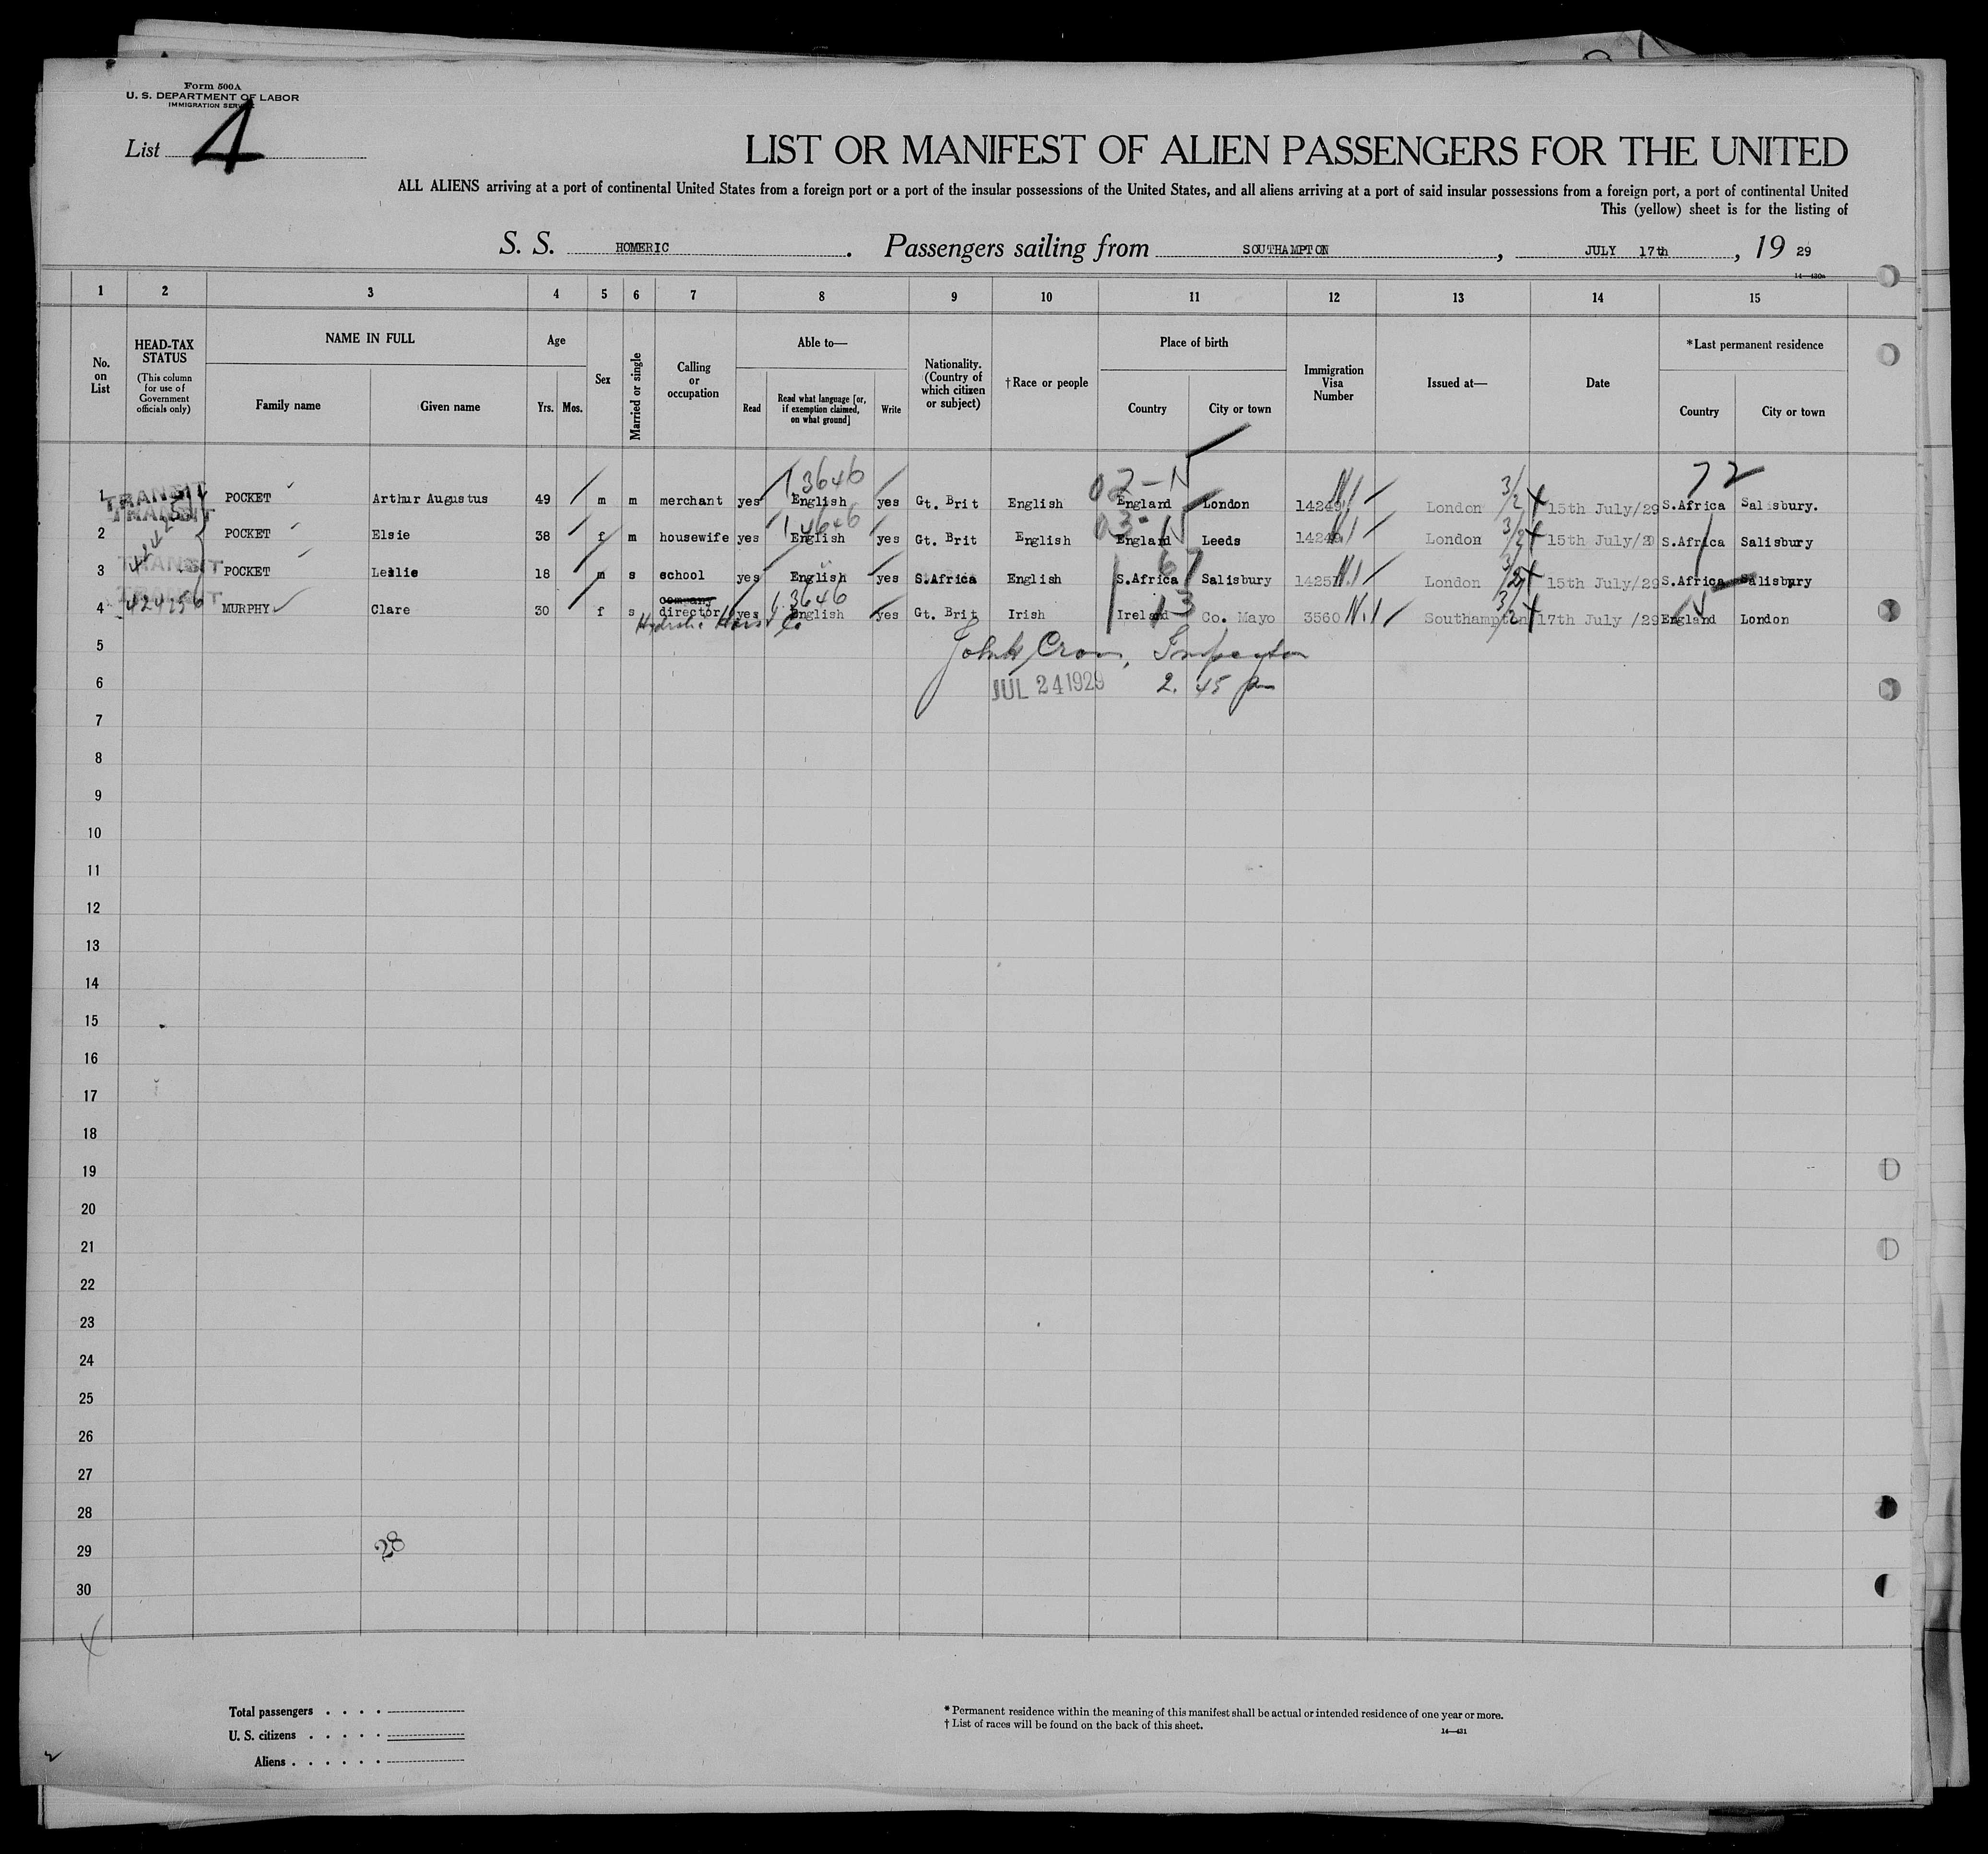 Form 500A
U. S. DEPARTMENT OF LABOR
IMMIGRATION SERVICE
List 4
LIST OR MANIFEST OF ALIEN PASSENGERS FOR THE UNITED
ALL ALIENS arriving at a port of continental United States from a foreign port or a port of the insular possessions of the United States, and all aliens arriving at a port of said insular possessions from a foreign port, a port of continental United
This (yellow) sheet is for the listing of
S. S. HOMERIC. Passengers sailing from SOUTHAMPTON, JULY 17th, 19 29
1 2 3 4 5 6 7 8 9 10 11 12 13 14 15
No. on List
HEAD-TAX STATUS
(This column for use of Government officials only)
NAME IN FULL
Family name Given name
Age
Yrs. Mos.
Sex
Married or single
Calling or occupation
Able to—
Read
Read what language [or, if exemption claimed, on what ground]
Write
Nationality. (Country of which citizen or subject)
†Race or people
Place of birth
Country City or town
Immigration Visa Number
Issued at—
Date
*Last permanent residence
Country City or town
13646 02-N 72
1 TRANSIT POCKET Arthur Augustus 49 m m merchant yes English yes Gt. Brit English England London London 15th July/29 S.Africa Salisbury.
TRANSIT
2 POCKET Elsie 38 f m housewife yes English yes Gt. Brit English England Leeds London 15th July/29 S.Africa Salisbury
3 TRANSIT POCKET Leslie 18 m s school yes English yes S.Africa English S.Africa Salisbury London 15th July/29 S.Africa Salisbury
company 13646
4 424256 MURPHY Clare 30 f s director yes English yes Gt. Brit Irish Ireland Co. Mayo 3560 Southampton 17th July /29 England London
5 Inspector
6 JUL 24 1929 2. 45 pm
7
8
9
10
11
12
13
14
15
16
17
18
19
20
21
22
23
24
25
26
27
28
29 28
30
Total passengers . . . .
U. S. citizens . . . . .
Aliens . . . . . .
* Permanent residence within the meaning of this manifest shall be actual or intended residence of one year or more.
† List of races will be found on the back of this sheet.
14—431